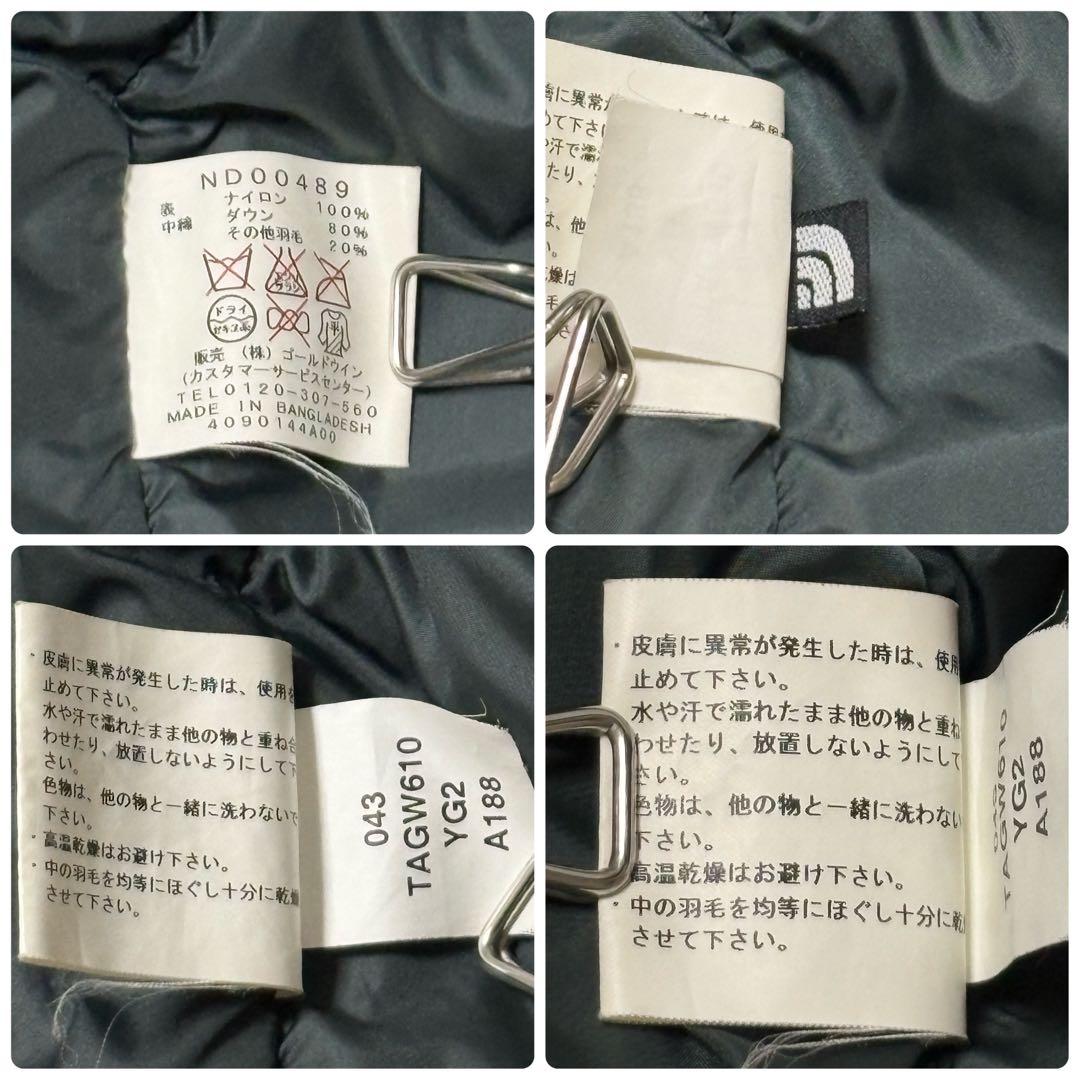 ND00489
表 ナイロン 100%
中綿 ダウン 80%
その他羽毛 20%
ドライ
セキユ系
平
販売 (株) ゴールドウイン
(カスタマーサービスセンター)
TEL0120-307-560
MADE IN BANGLADESH
4090144A00
膚に異常が
時は、使用
めて下さ
や汗で濡
たり、
は、他
燥は
・皮膚に異常が発生した時は、使用を
止めて下さい。
水や汗で濡れたまま他の物と重ね合
わせたり、放置しないようにして下
さい。
色物は、他の物と一緒に洗わないで
下さい。
・高温乾燥はお避け下さい。
・中の羽毛を均等にほぐし十分に乾燥
させて下さい。
043
TAGW610
YG2
A188
・皮膚に異常が発生した時は、使用
止めて下さい。
水や汗で濡れたまま他の物と重ね
わせたり、放置しないようにして
さい。
色物は、他の物と一緒に洗わない
下さい。
高温乾燥はお避け下さい。
・中の羽毛を均等にほぐし十分に乾
させて下さい。
043
TAGW610
YG2
A188